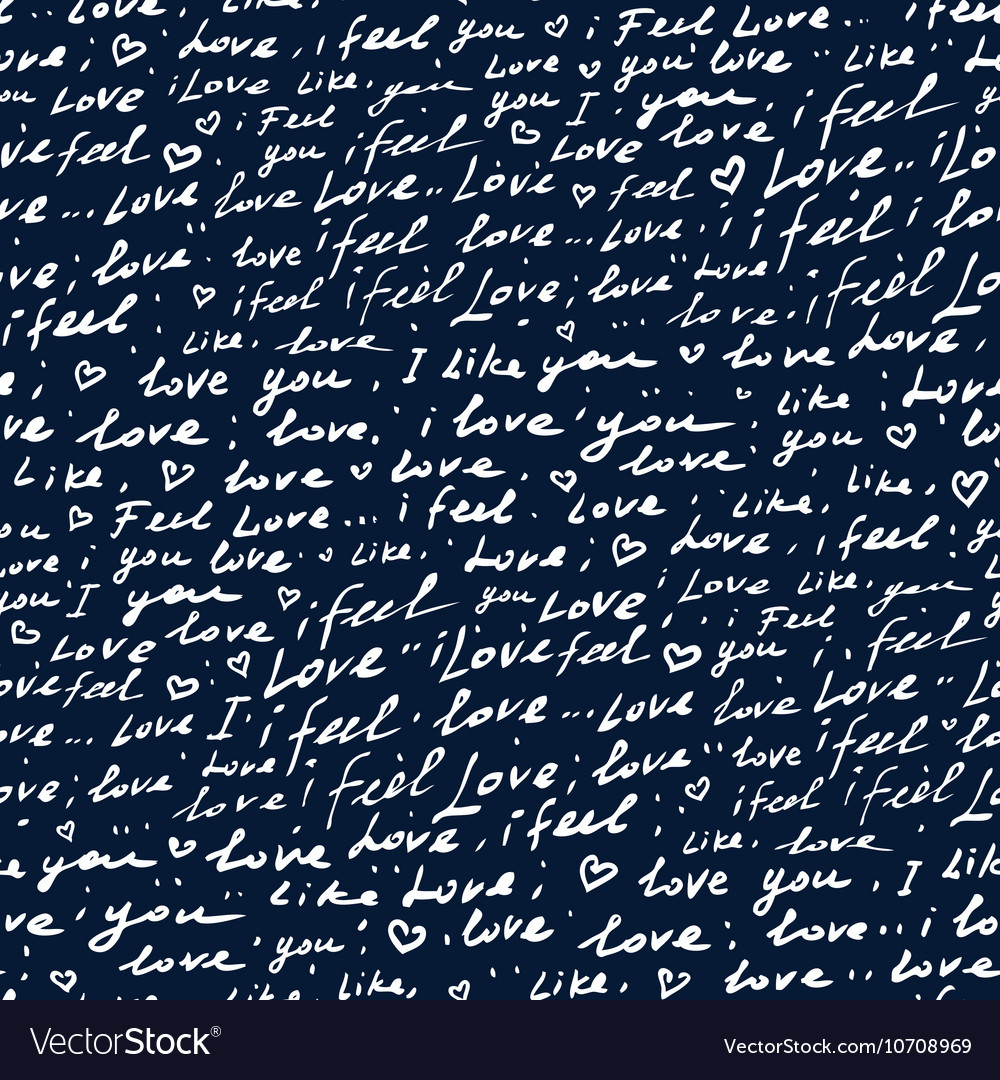 Love, Love.. Love Love... ifeel
ove; Love, i feel you i Feel Love...
ou Love iLove Like. you Love you love " Like " Lo
i Feel you I you.
ve feel you ifeel Love love i feel y
ve... Love love Love.. Love feel Love.. iLo
ve; love. love ifeel love... Love. i i feel i lo
i feel ifeel ifeel Love; love " Love
Like. love ... love. ifeel Lo
e; love you, I Like you love Love,
ve love; love. i love you. Like Love
Like, love love, love you lo
ou Feel Love... i feel. Love Like, Like,
Love; you love Like. Love; Love, i feel: y
you I you ifeel you Love Love Like. you L
Love love i Feel y
ovefeel Love " iLovefeel you i. feel
ove... Love I i feel. love... Love love Love .. Lo
ove; love Love i feel Love; love " love ifeel lo
love ifeel ifeel Lo
e you love Love, i feel Like. love
ve you Like " Love; love you, I Lik
love you love love; love.. i lo
Like Like, Like, love .. love
VectorStock®
VectorStock.com/10708969